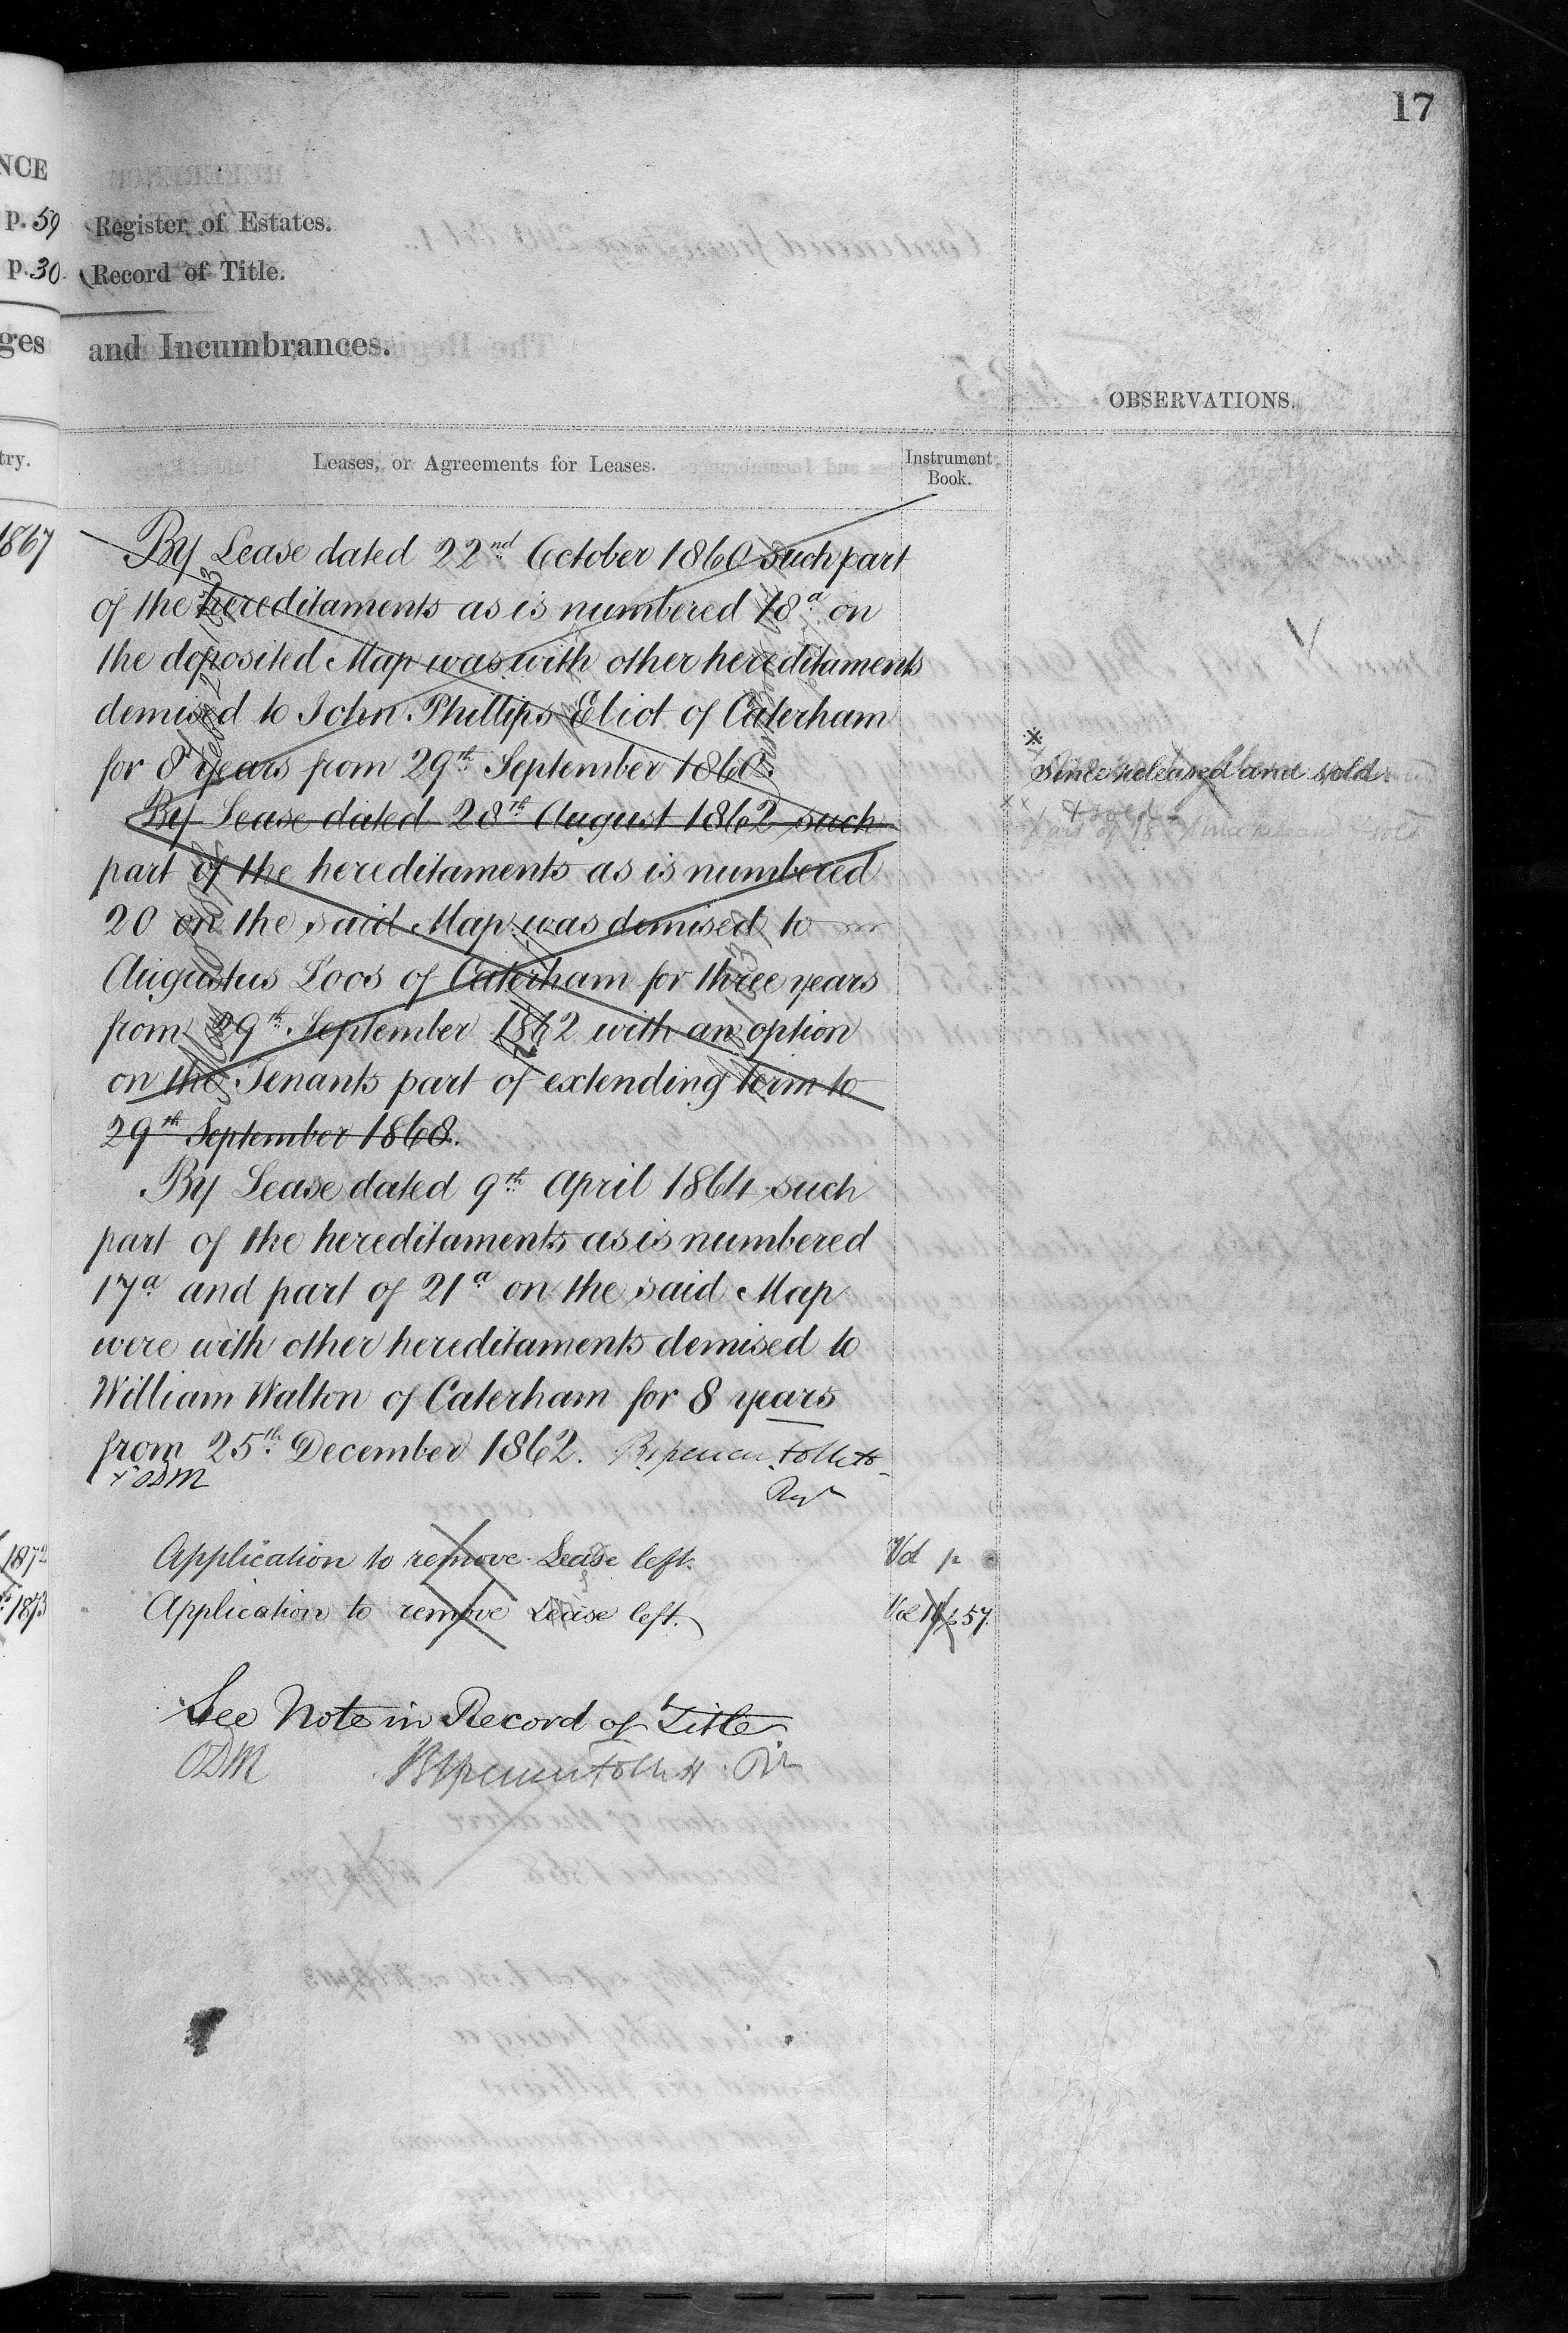 17
NCE
p. 59 Register of Estates.
p. 30. Record of Title.
ges and Incumbrances.
OBSERVATIONS.
try. Leases, or Agreements for Leases. Instrument Book.
1867 By Lease dated 22nd October 1860 such part
of the hereditaments as is numbered 18a on
the deposited Map was with other hereditaments
demised to John Phillips Eliot of Caterham
for 8 years from 29th September 1860.
Since released and sold
By Lease dated 28th August 1862 such
part of the hereditaments as is numbered
20 on the said Map was demised to
Augustus Loos of Caterham for three years
from 29th September 1862 with an option
on the Tenants part of extending term to
29th September 1868.
By Lease dated 9th April 1864 such
part of the hereditaments as is numbered
17a and part of 21a on the said Map
were with other hereditaments demised to
William Walton of Caterham for 8 years
from 25th December 1862.
ODM
1872 Application to remove Lease left. Vol p
1873 Application to remove Lease left. Vol 57.
See Note in Record of Title
ODM